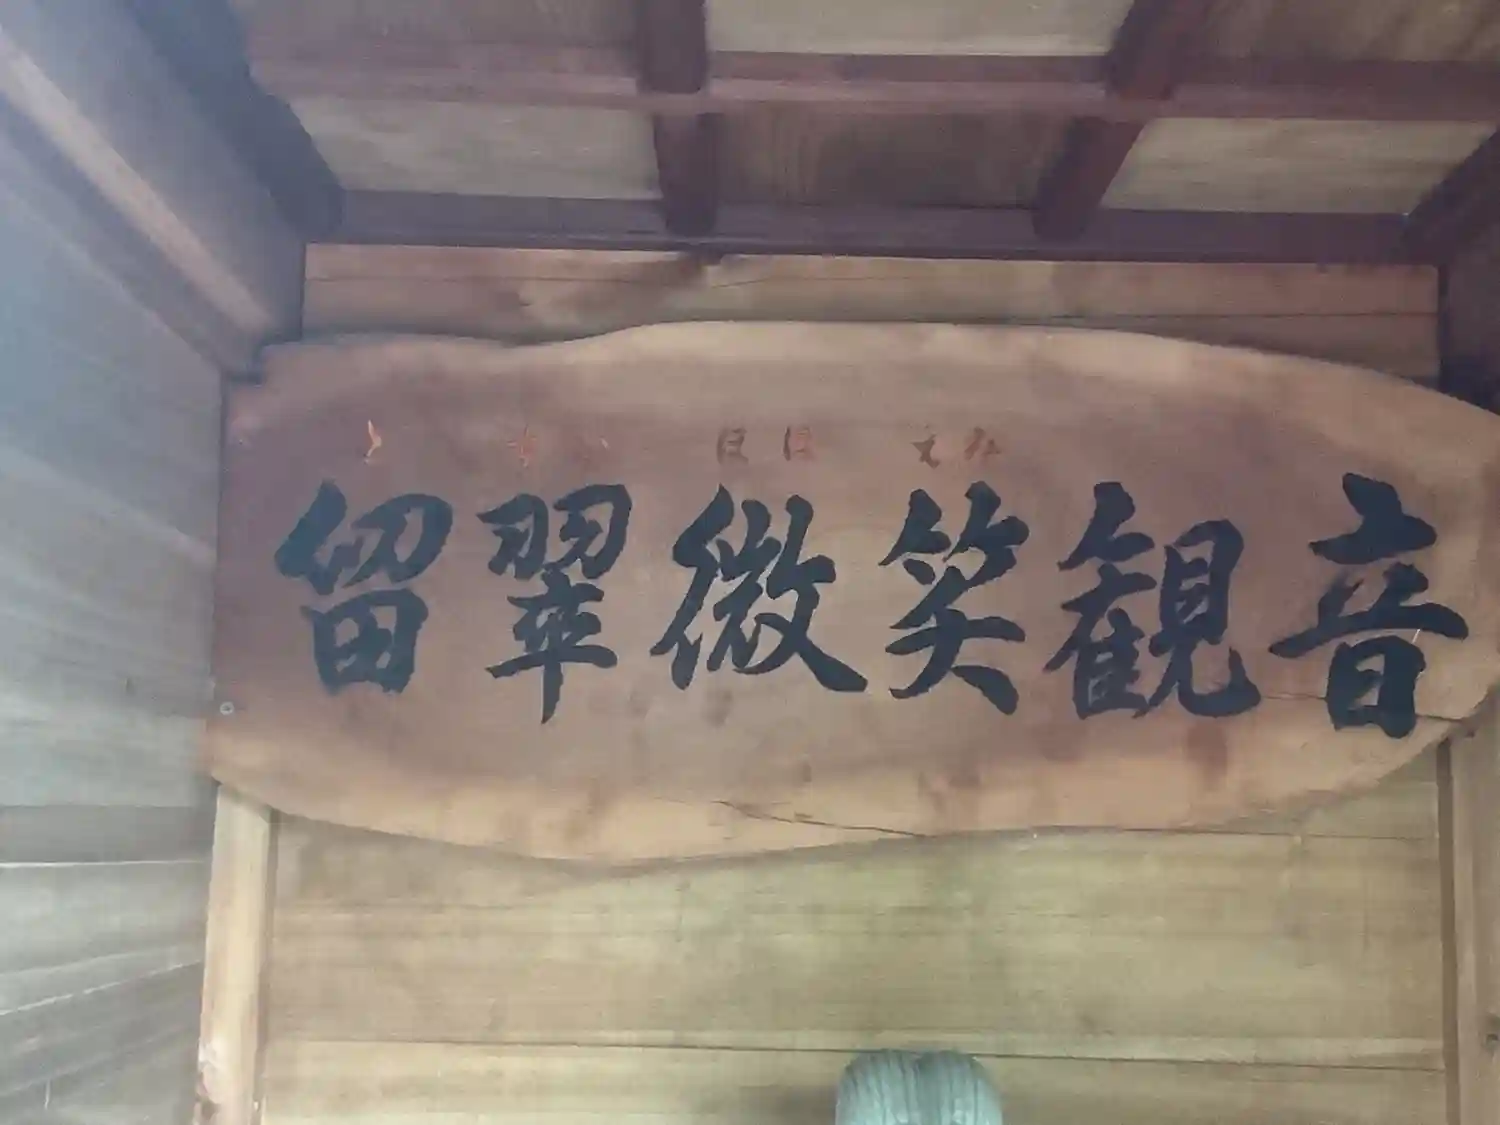 と ほほ えみ
留翠微笑観音